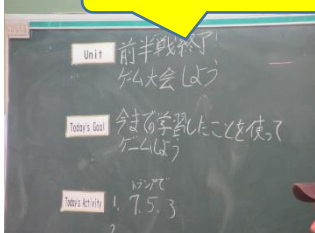 Unit 前半戦終了!
ゲーム大会しよう
Today's Goal 今まで学習したことを使って
ゲームしよう
トランプで
Today's Activity 1. 7.5.3
2